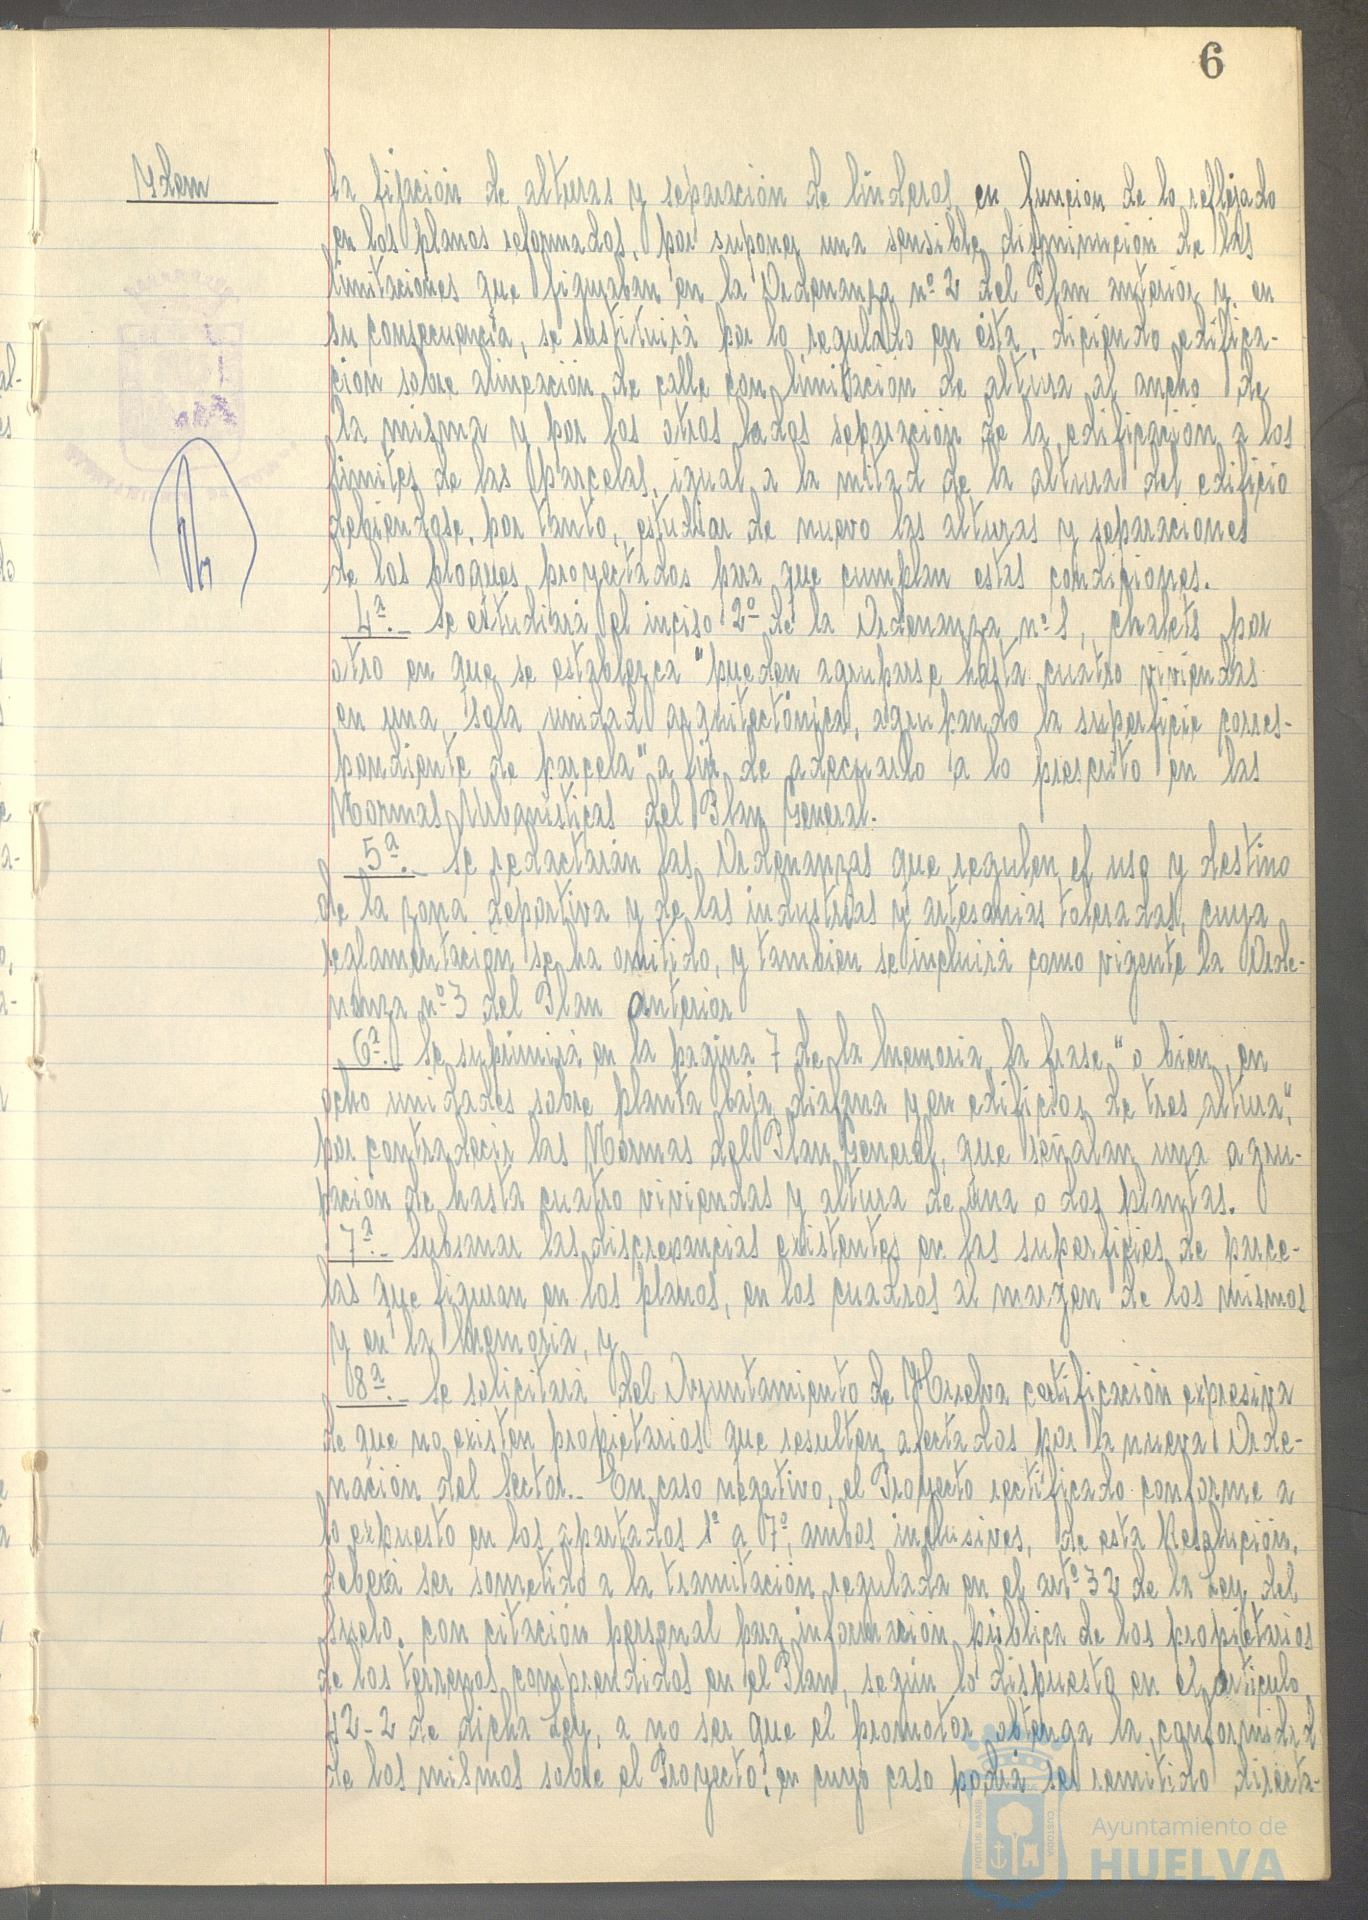 6
Ydem
la fijación de alturas y separación de linderos en funcion de lo reflejado
en los planos reformados, por suponer una sensible disminución de las
limitaciones que figuraban en la Ordenanza nº 2 del Plan anterior y en
su consecuencia, se sustituirá por lo regulado en ésta, diciendo edifica-
ción sobre alineación de calle con limitación de altura al ancho de
la misma y por los otros lados separación de la edificación a los
límites de las parcelas, igual a la mitad de la altura del edificio
debiéndose, por tanto, estudiar de nuevo las alturas y separaciones
de los bloques proyectados para que cumplan estas condiciones.
4ª.- Se estudiará el inciso 2º de la Ordenanza nº 1, chalets por
otro en que se establezca "pueden agruparse hasta cuatro viviendas
en una sola unidad arquitectónica, agrupando la superficie corres-
pondiente de parcela" a fin de adecuarlo a lo prescrito en las
Normas Urbanísticas del Plan General.
5ª.- Se redactarán las Ordenanzas que regulen el uso y destino
de la zona deportiva y de las industrias y artesanias toleradas, cuya
reglamentación se ha omitido, y tambien se incluirá como vigente la Orde-
nanza nº 3 del Plan anterior
6ª. Se suprimirá en la pagina 7 de la Memoria la frase "o bien en
ocho unidades sobre planta baja diafana y en edificios de tres altura",
por contradecir las Normas del Plan General, que señalan una agru-
pación de hasta cuatro viviendas y altura de una o dos plantas.
7ª.- Subsanar las discrepancias existentes en las superficies de parce-
las que figuran en los planos, en los cuadros al margen de los mismos
y en la Memoria, y
8ª.- Se solicitará del Ayuntamiento de Huelva certificación expresiva
de que no existen propietarios que resulten afectados por la nueva Orde-
nación del Sector.- En caso negativo, el Proyecto rectificado conforme a
lo expuesto en los apartados 1º a 7º, ambos inclusives, de esta Resolución,
deberá ser sometido a la tramitación regulada en el artº 32 de la Ley del
Suelo, con citación personal para información pública de los propietarios
de los terrenos comprendidos en el Plan, según lo dispuesto en el articulo
42-2 de dicha Ley, a no ser que el promotor obtenga la conformidad
de los mismos sobre el Proyecto, en cuyo caso podrá ser remitido directa-
PORTUS MARIS
CUSTODIA
Ayuntamiento de
HUELVA